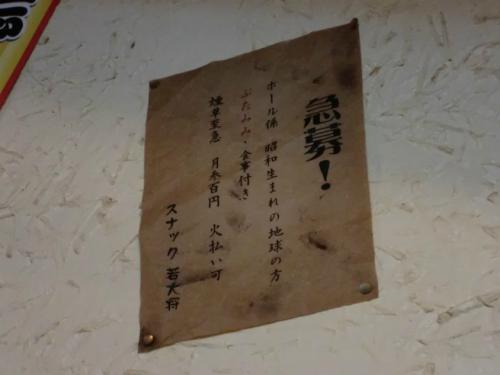 急募!
ホール係 昭和生まれの地球の方
ぶたみみ・食事付き
煙草至急 月参百円 火払い可
スナック 若大将